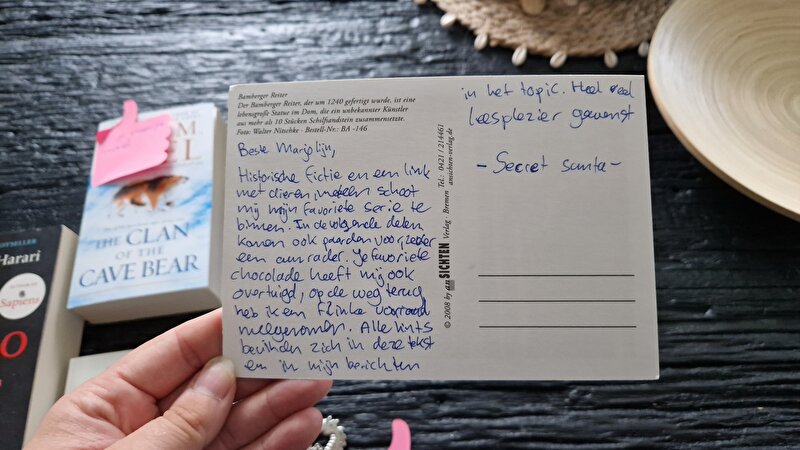 Bamberger Reiter
Der Bamberger Reiter, der um 1240 gefertigt wurde, ist eine
lebensgroße Statue im Dom, die ein unbekannter Künstler
aus mehr als 10 Stücken Schilfsandstein zusammensetzte.
Foto: Walter Nitschke · Bestell-Nr.: BA -146
Beste Marjolijn,
Historische fictie en een link
met dieren, meteen schoot
mij mijn favoriete serie te
binnen. In de volgende delen
komen ook paarden voor, zeker
een aanrader. Je favoriete
chocolade heeft mij ook
overtuigd, op de weg terug
heb ik een flinke voorraad
meegenomen. Alle hints
bevinden zich in deze tekst
en in mijn berichten
in het topic. Heel veel
leesplezier gewenst
- Secret santa -
© 2008 by anSICHTEN Verlag Bremen Tel.: 0421 / 214461
ansichten-verlag.de
THE CLAN
OF THE
CAVE BEAR
BESTSELLER
Harari
Sapiens